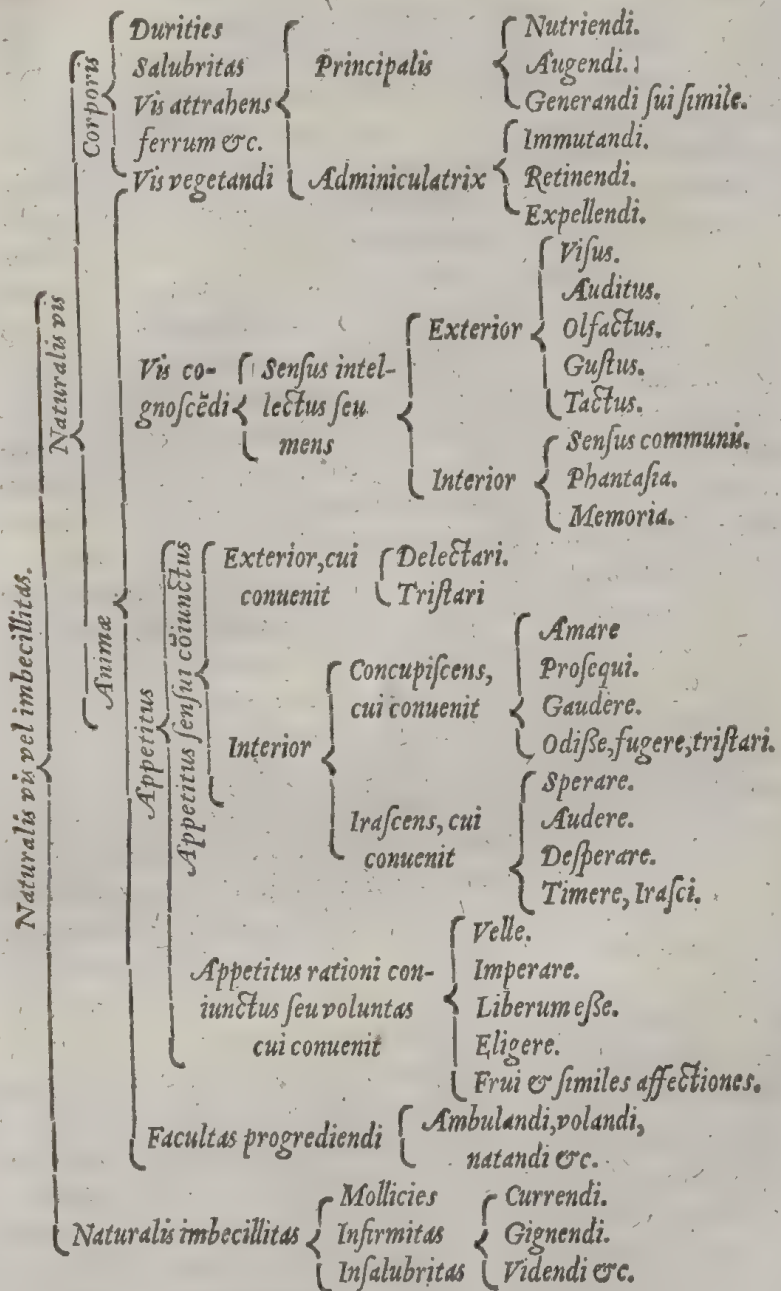 Naturalis vis vel imbecillitas.
Naturalis vis
Corporis
Durities
Salubritas
Vis attrahens
ferrum &c.
Vis vegetandi
Principalis
Nutriendi.
Augendi.
Generandi sui simile.
Adminiculatrix
Immutandi.
Retinendi.
Expellendi.
Animæ
Vis co-
gnoscẽdi
Sensus intel-
lectus seu
mens
Exterior
Visus.
Auditus.
Olfactus.
Gustus.
Tactus.
Interior
Sensus communis.
Phantasia.
Memoria.
Appetitus
Appetitus sensui cõiunctus
Exterior, cui
conuenit
Delectari.
Tristari
Interior
Concupiscens,
cui conuenit
Amare
Prosequi.
Gaudere.
Odisse, fugere, tristari.
Irascens, cui
conuenit
Sperare.
Audere.
Desperare.
Timere, Irasci.
Appetitus rationi con-
iunctus seu voluntas
cui conuenit
Velle.
Imperare.
Liberum esse.
Eligere.
Frui & similes affectiones.
Facultas progrediendi
Ambulandi, volandi,
natandi &c.
Naturalis imbecillitas
Mollicies
Infirmitas
Insalubritas
Currendi.
Gignendi.
Videndi &c.